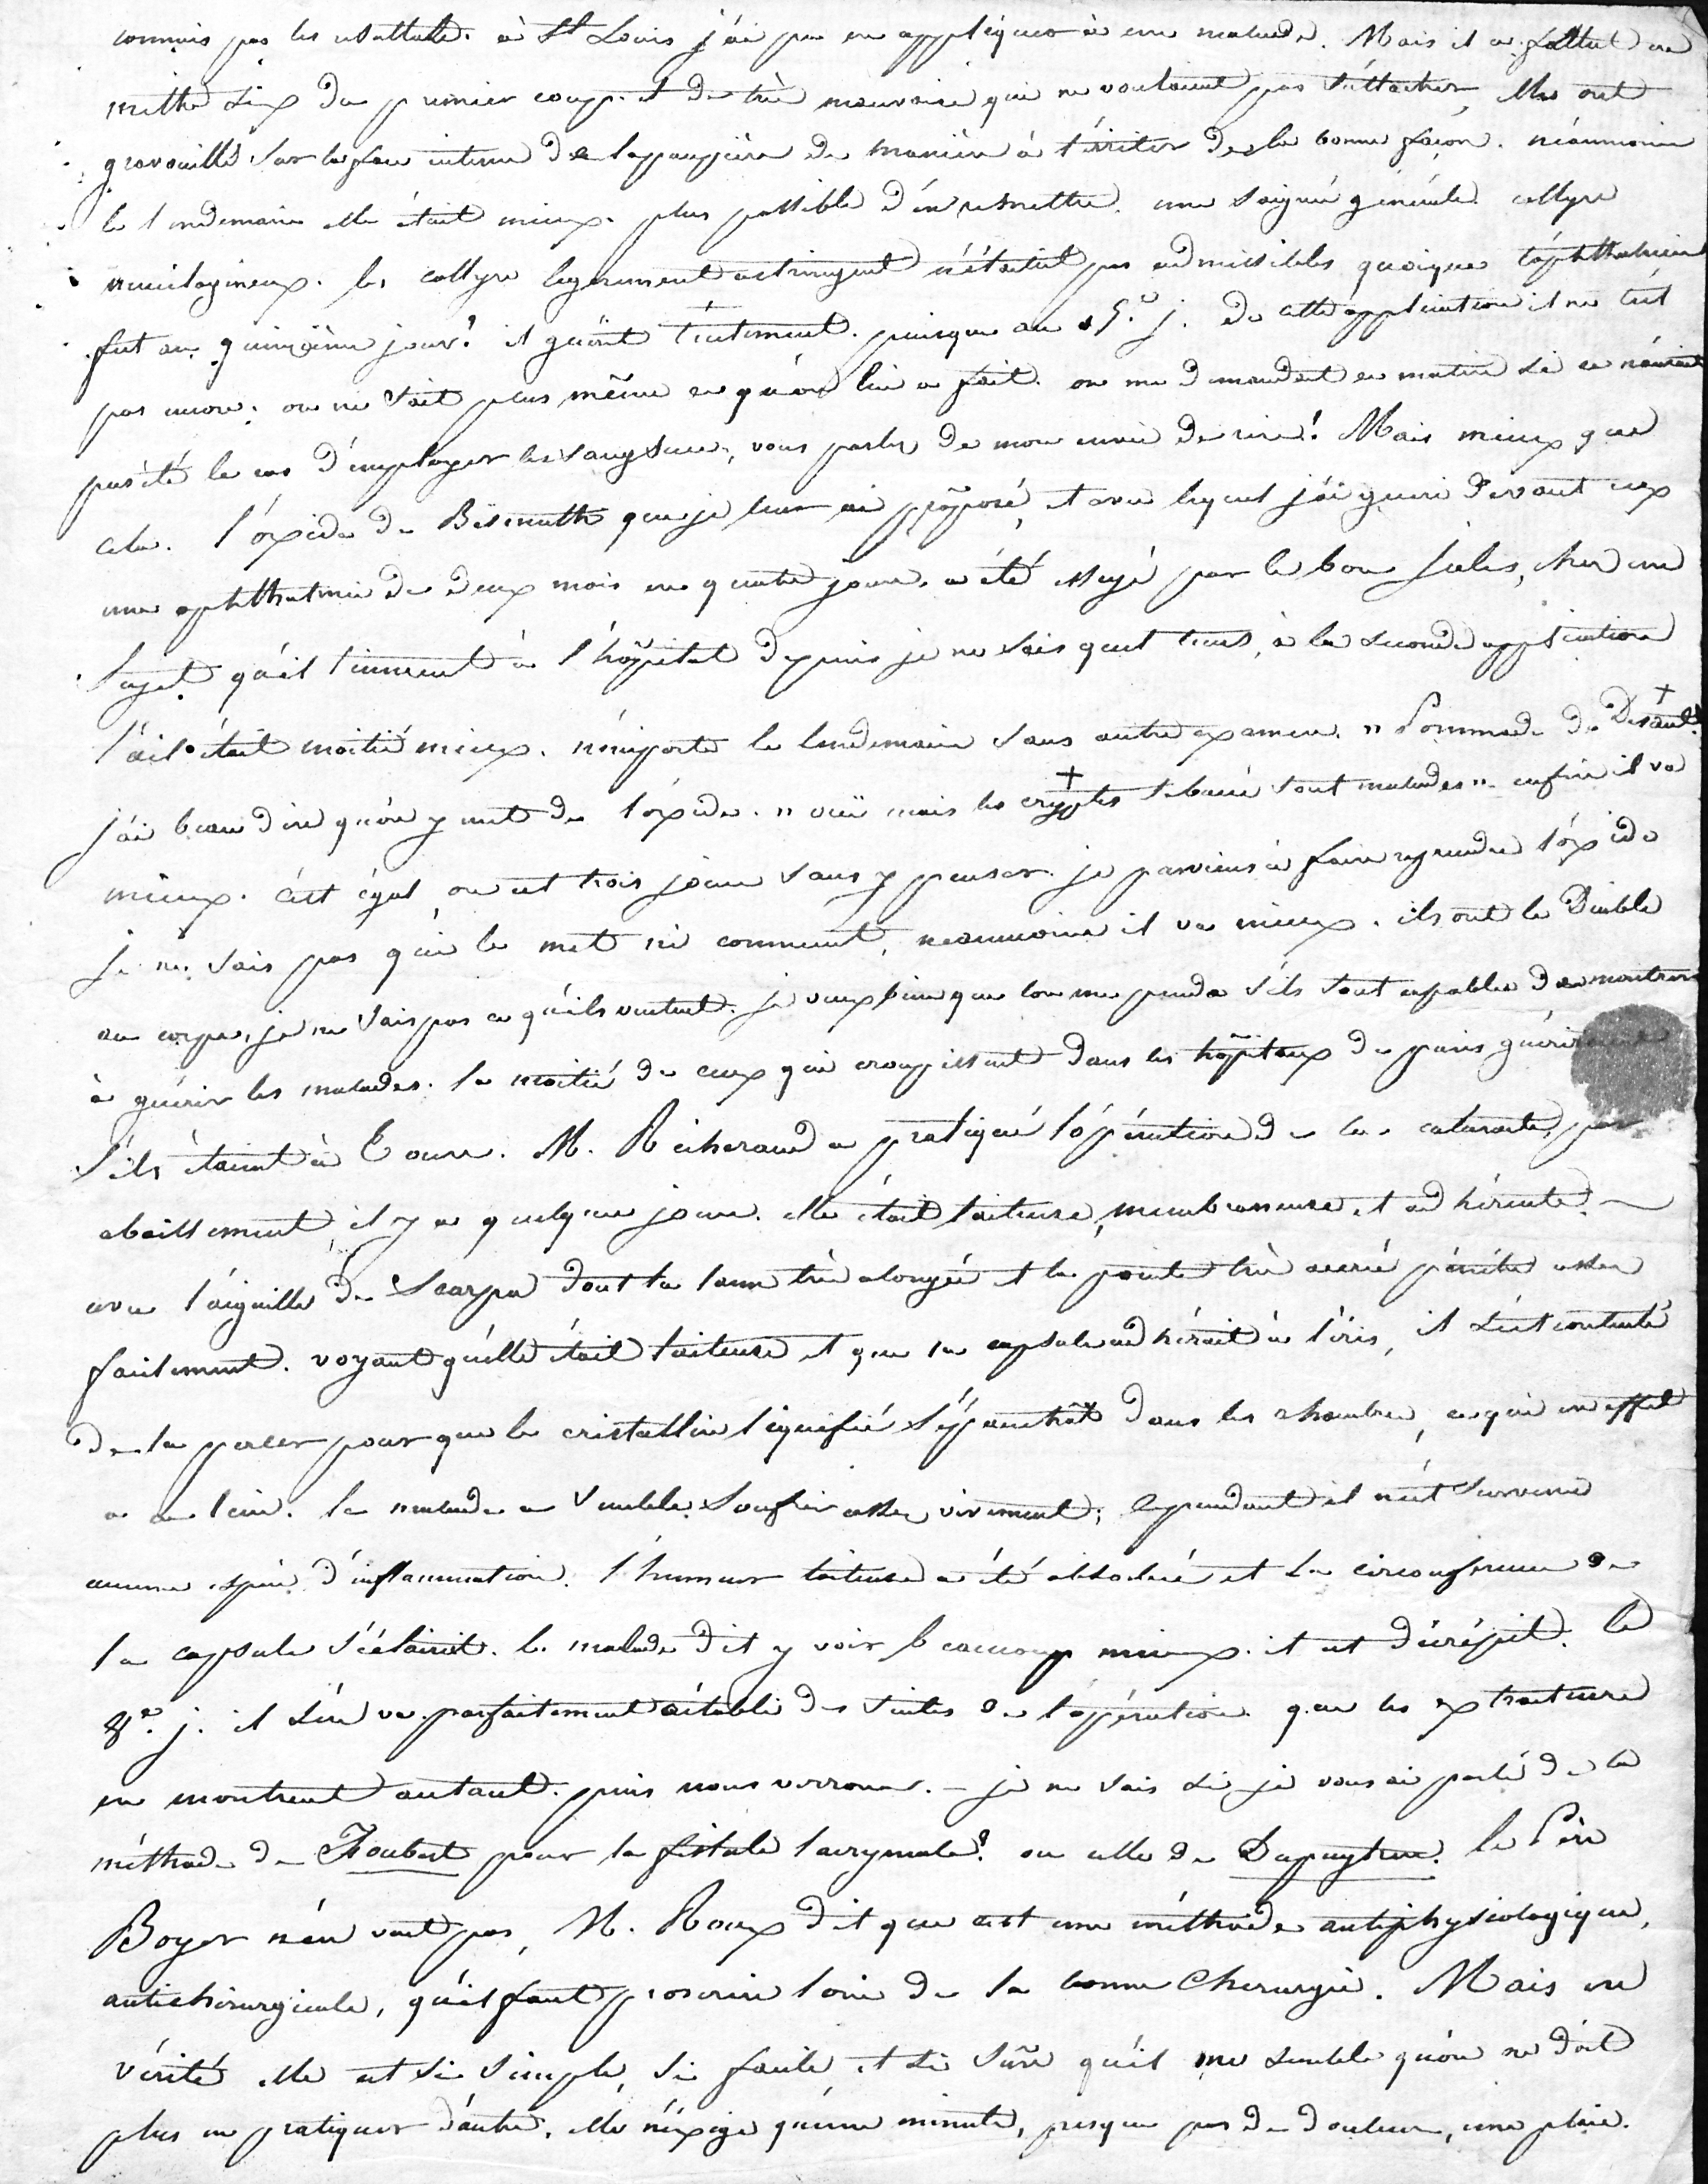 connais pas les resultats. à St Louis j'ai pu en appliquer à une malade. Mais il a fallut en
mettre dix du premier coup. et de très mauvaises qui ne voulaient pas s'attacher, elles ont
gravouillé sur la face interne de la paupière de manière à l'irriter de la bonne façon. néanmoins
le lendemain elle était mieux. plus possible d'en remettre. une saignée générale. collyre
mucilagineux. les collyre legerement astringent n'étaient pas admissibles quoique l'ophthalmie
fut au quinzième jour! il guérit lentement. puisque au 15e. j. de cette application il ne l'est
pas encore. on ne sait plus même ce qu'on lui a fait. on me demandait ce matin si ce n'aurait
pas été le cas d'employer les sangsues, vous parlez de mon envie de rire! Mais mieux que
cela. l'oxide de Bismuth que je leur ai proposé, et avec lequel j'ai gueri devant eux
une ophthalmie de deux mois en quatre jours, a été essayé par le bon Jules, chez un
sujet qu'ils tiennent à l'hôpital depuis je ne sais quel tems, à la seconde application
l'œil était moitié mieux. n'importe le lendemain sans autre examen. " Pommade de Desault.
j'ai beau dire qu'on y met de l'oxide. " oui mais les cryptes sébacés sont malades " enfin il va
mieux. c'est égal, on est trois jours sans y penser. je parviens à faire reprendre l'oxide
je ne sais pas qui le met ni comment, neanmoins il va mieux. ils ont le Diable
au corps, je ne sais pas ce qu'ils veulent. je veux bien que l'on me pende s'ils sont capables de montrer
à guérir les malades. la moitié de ceux qui croupissent dans les hôpitaux de paris guériraient
s'ils étaient à Tours. M. Richerand a pratiqué l'opération de la cataracte, par
abaissement, il y a quelques jours. elle était laiteuse, membraneuse et adhérente.
avec l'aiguille de Scarpa dont la lame très alongée et la pointe très acerée pénètre assez
facilement. voyant qu'elle était laiteuse et que la capsule adhérait à l'iris, il s'est contenté
de la percer pour que le cristallin liquifié s'épanchât dans les chambres, ce qui en effet
a eu lieu. le malade a semblé soufrir assez vivement; cependant il n'est survenu
aucune espèce d'inflammation. l'humeur laiteuse a été absorbée et la circonférence de
la capsule s'éclaircit. le malade dit y voir beaucoup mieux. il est décrépit. le
8e. j. il s'en va parfaitement rétabli des suites de l'opération. que les extracteurs
en montrent autant. puis nous verrons. – je ne sais si je vous ai parlé de la
méthode de Foubert pour la fistule lacrymale? ou celle de Dupuytren. le Père
Boyer n'en veut pas, M. Roux dit que c'est une méthode antiphysiologique,
antichirurgicale, qu'il faut proscrire loin de la bonne Chirurgie. Mais en
vérité elle est si simple, si facile et si sûre qu'il me semble qu'on ne doit
plus en pratiquer d'autre. elle n'exige qu'une minute, presque pas de douleur, une plaie.